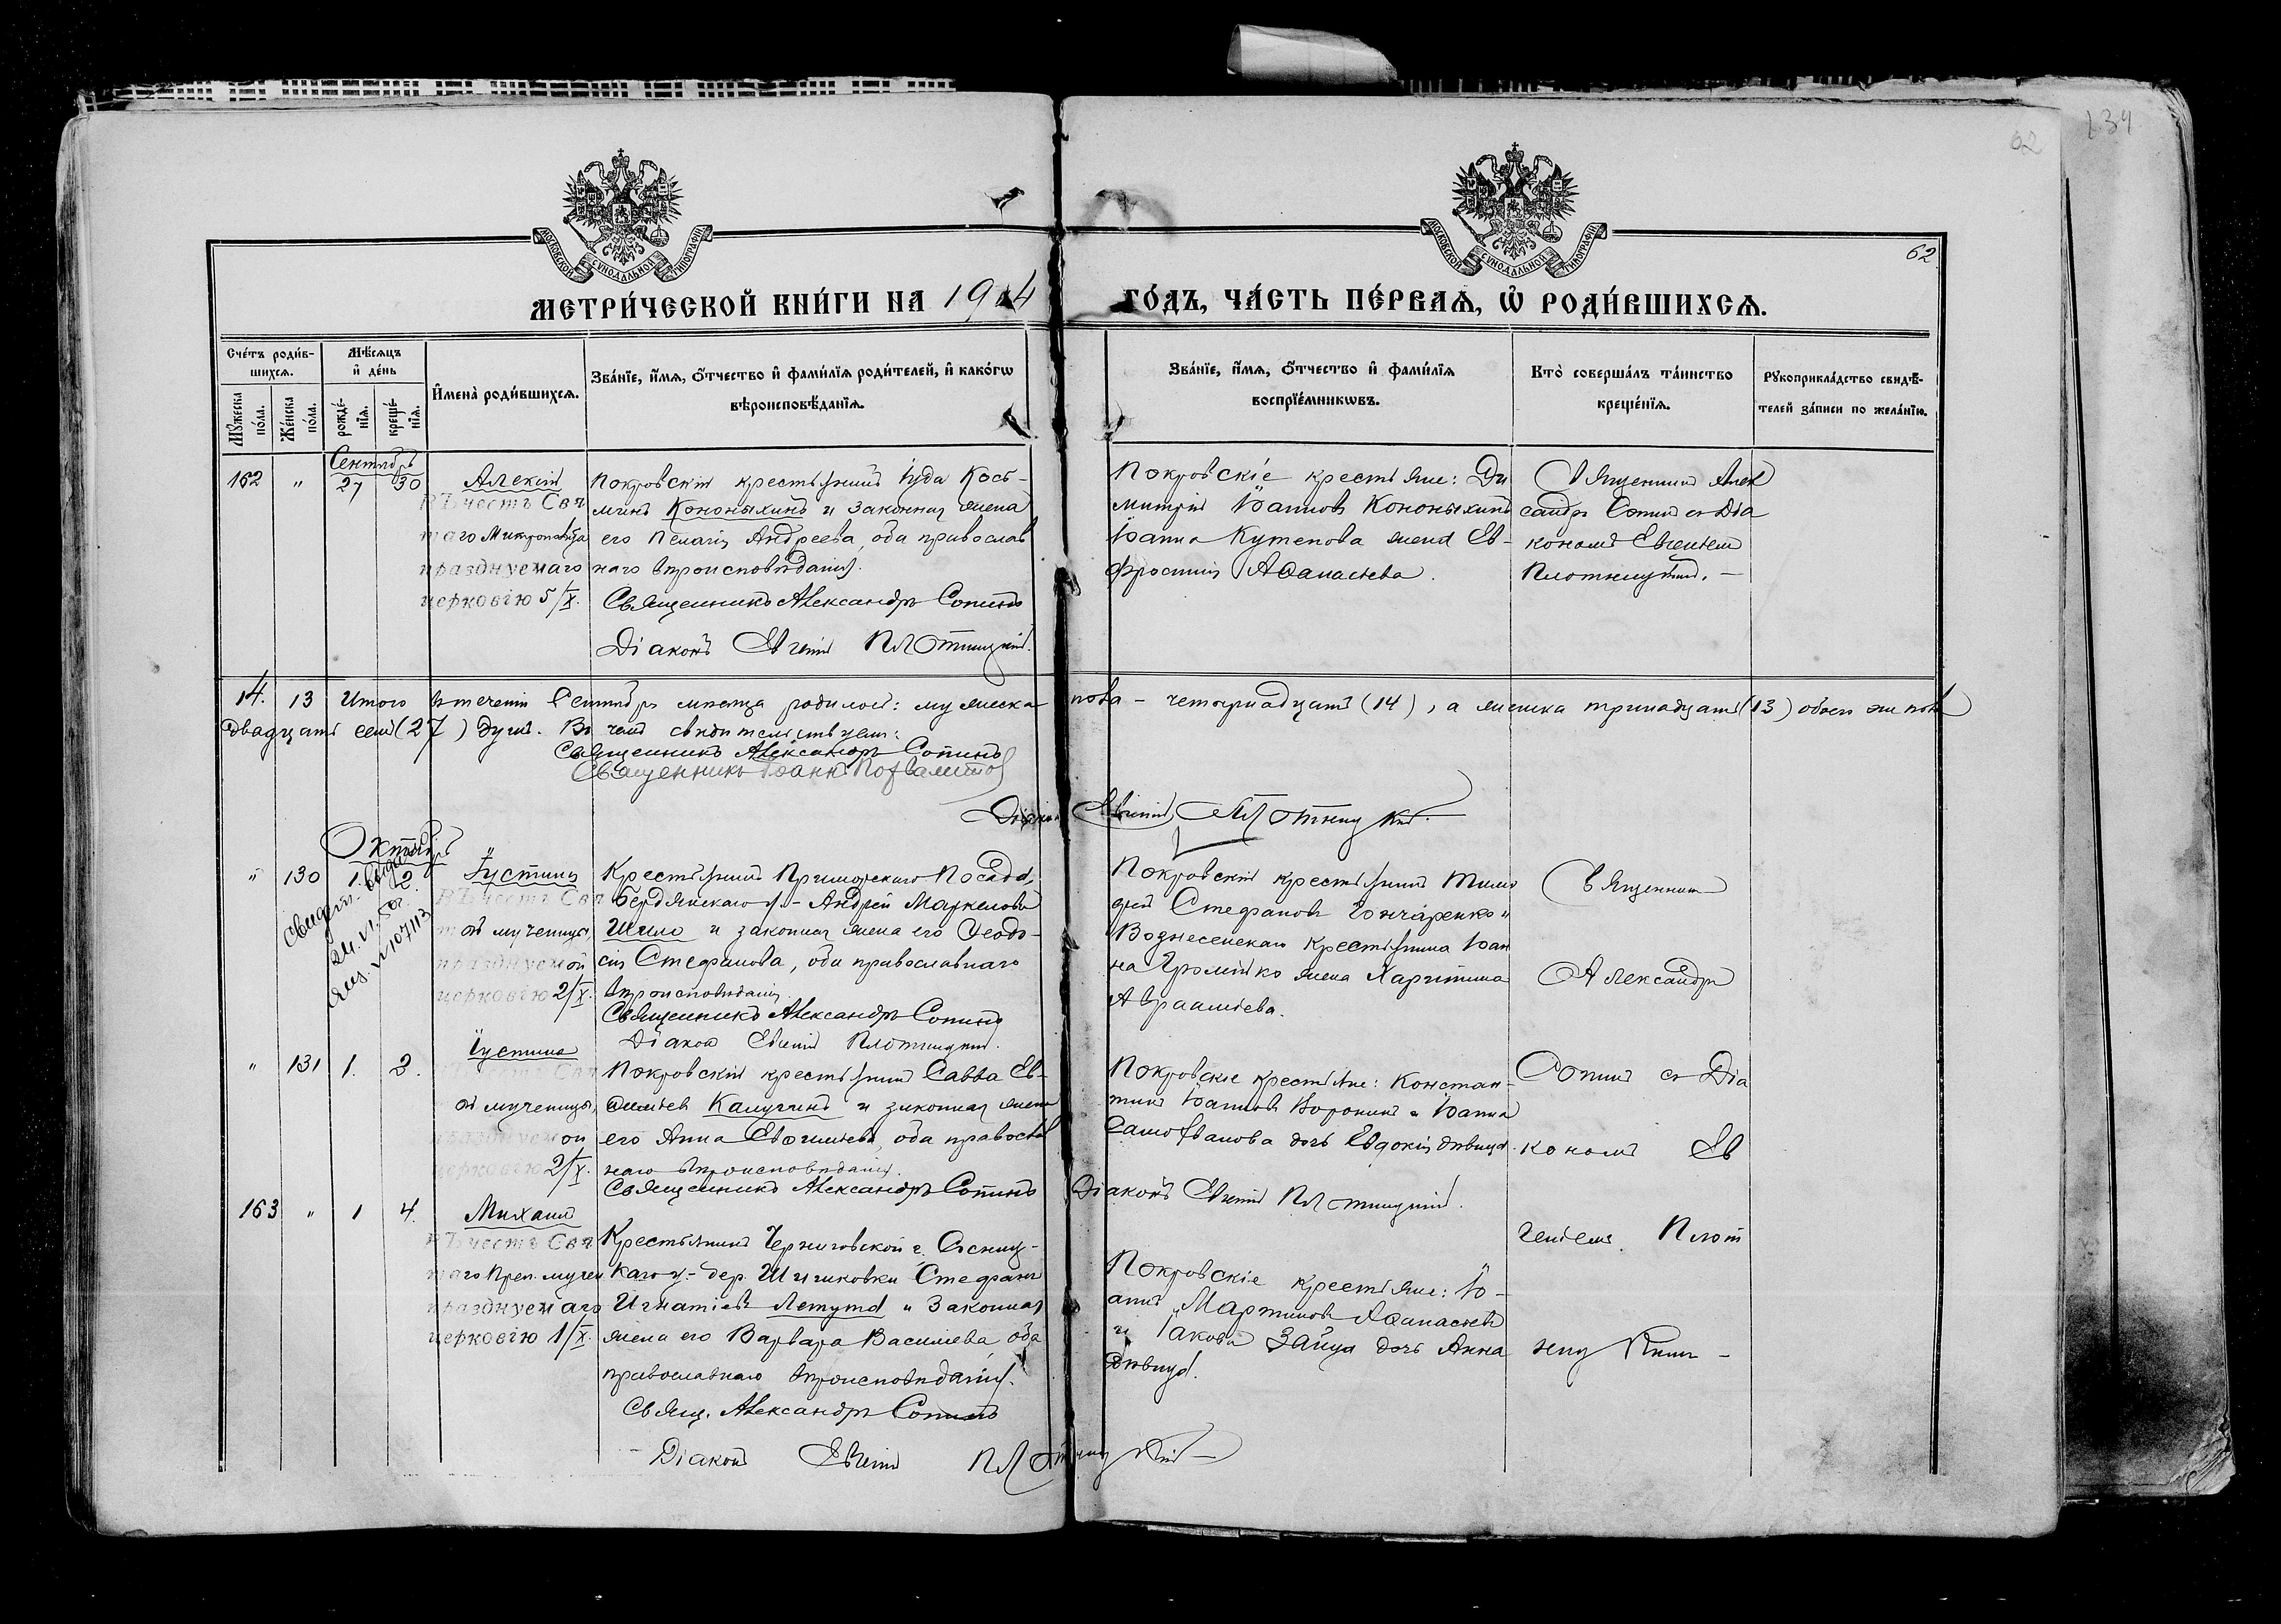 134
62
62
МОСКОВСКОЙ СУНОДАЛЬНОЙ ТИПОГРАФІИ
МОСКОВСКОЙ СУНОДАЛЬНОЙ ТИПОГРАФІИ
МЕТРИ́ЧЕСКОЙ КНИ́ГИ НА 1914 ГО́ДЪ, ЧА́СТЬ ПЕ́РВАѦ, Ѡ҆ РОДИ́ВШИХСѦ.
Сче́тъ роди́в-
шихсѧ.
Мѣ́сѧцъ
и҆ де́нь
Мꙋ́жеска по́ла.
Же́нска по́ла.
рожде́-
нїѧ.
креще́-
нїѧ.
И҆мена̀ роди́вшихсѧ.
Зва́нїе, и҆́мѧ, ѻ҆́тчество и҆ фами́лїѧ роди́телей, и҆ како́гѡ
вѣроисповѣ́данїѧ.
Зва́нїе, и҆́мѧ, ѻ҆́тчество и҆ фами́лїѧ
воспрїе́мникѡвъ.
Кто̀ соверша́лъ та́инство
креще́нїѧ.
Рꙋкоприкла́дство свидѣ́-
телей за́писи по жела́нїю.
Сентябрь
162 " 27 30 Алексій
Въ честь Свя
таго Митрополита
празднуемаго
церковію 5/X.
Покровскій крестьянинъ Іуда Кось-
минъ Кононыхинъ и законная жена
его Пелагія Андреева, оба православ
наго вѣроисповѣданія.
Священникъ Александръ Сопинъ
Діаконъ Евгеній Плотницкій.
Покровскіе крестьяне: Ди
митрій Іоанновъ Кононыхинъ
Іоанна Кутепова жена Ев-
фросинія Аѳанасьева.
Священникъ Алек
сандръ Сопинъ съ Діа
кономъ Евгеніемъ
Плотницкимъ. —
14. 13 Итого въ теченіи Сентябрь мѣсяца родилось: мужеска пола – четырнадцать (14), а женска тринадцать (13) обоего же пола
двадцать семь (27) душъ. Въ чемъ свидѣтельствуемъ:
Священникъ Александръ Сопинъ
Священникъ Іоаннъ
Діаконъ Евгеній Плотницкій.
Октябрь
" 130 1. 2. Іустина
Въ честь Свя
той мученицы,
празднуемой
церковію 2/X.
Крестьянинъ Приморскаго Посада,
Бердянскаго у. – Андрей Маркеловъ
Шило и законная жена его Ѳеодо-
сія Стефанова, оба православнаго
вѣроисповѣданія
Священникъ Александръ Сопинъ
Діаконъ Евгеній Плотницкій.
Покровскій крестьянинъ
Стефановъ Гончаренко и
Вознесенскаго крестьянина Іоан
на Громытко жена Харитина
Авраамьева.
Священникъ
Александръ
" 131 1. 2. Іустина
Въ честь Свя
той мученицы,
празднуемой
церковію 2/X.
Покровскій крестьянинъ Савва Ев-
Калугинъ и законная жена
его Анна Евѳиміева, оба православ
наго вѣроисповѣданія.
Священникъ Александръ Сопинъ Діаконъ Евгеній Плотницкій.
Покровскіе крестьяне: Констан-
тинъ Іоанновъ Воронинъ и Іоанна
Самофалова дочь Евдокія дѣвица.
Сопинъ съ Діа
кономъ Ев
163 " 1 4. Михаилъ
Въ честь Свя
таго Преп. мучен
празднуемаго
церковію 1/X.
Крестьянинъ Черниговской г. Сосниц-
каго у. – дер. Шишковки Стефанъ
Игнатіевъ Летута и законная
жена его Варвара Василіева, оба
православнаго вѣроисповѣданія.
Свящ. Александръ Сопинъ
Діаконъ Евгеній Плотницкій —
Покровскіе крестьяне: Іо-
аннъ Мартиновъ Аѳанасьевъ
и Іакова Зайца дочь Анна
дѣвица.
геніемъ Плот
ницкимъ –